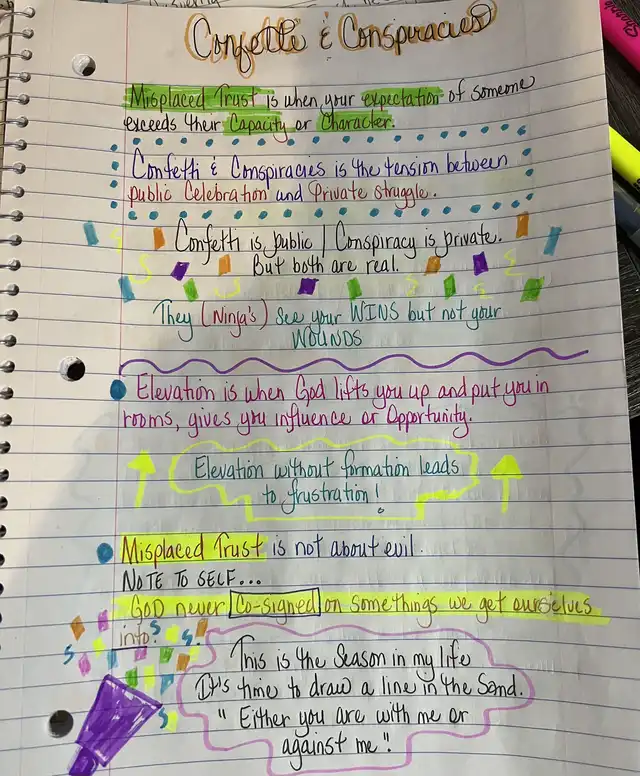 Confetti & Conspiracies
Misplaced Trust is when your expectation of someone
exceeds their Capacity or Character.
Confetti & Conspiracies is the tension between
public Celebration and Private struggle.
Confetti is public | Conspiracy is private.
But both are real.
They (Ninja's) See your WINS but not your
WOUNDS
Elevation is when God lifts you up and put you in
rooms, gives you influence or Opportunity.
Elevation without formation leads
to frustration!
Misplaced Trust is not about evil.
NOTE TO SELF...
GOD never Co-signed on somethings we get ourselves
into.
This is the Season in my life
It's time to draw a line in the Sand.
"Either you are with me or
against me".